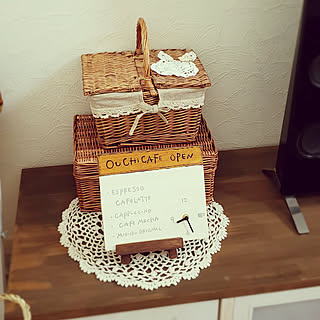 OUCHICAFE OPEN
- ESPRESSO
CAFELATTE
- CAPPUCCINO
CAFE MOCHA
12
9